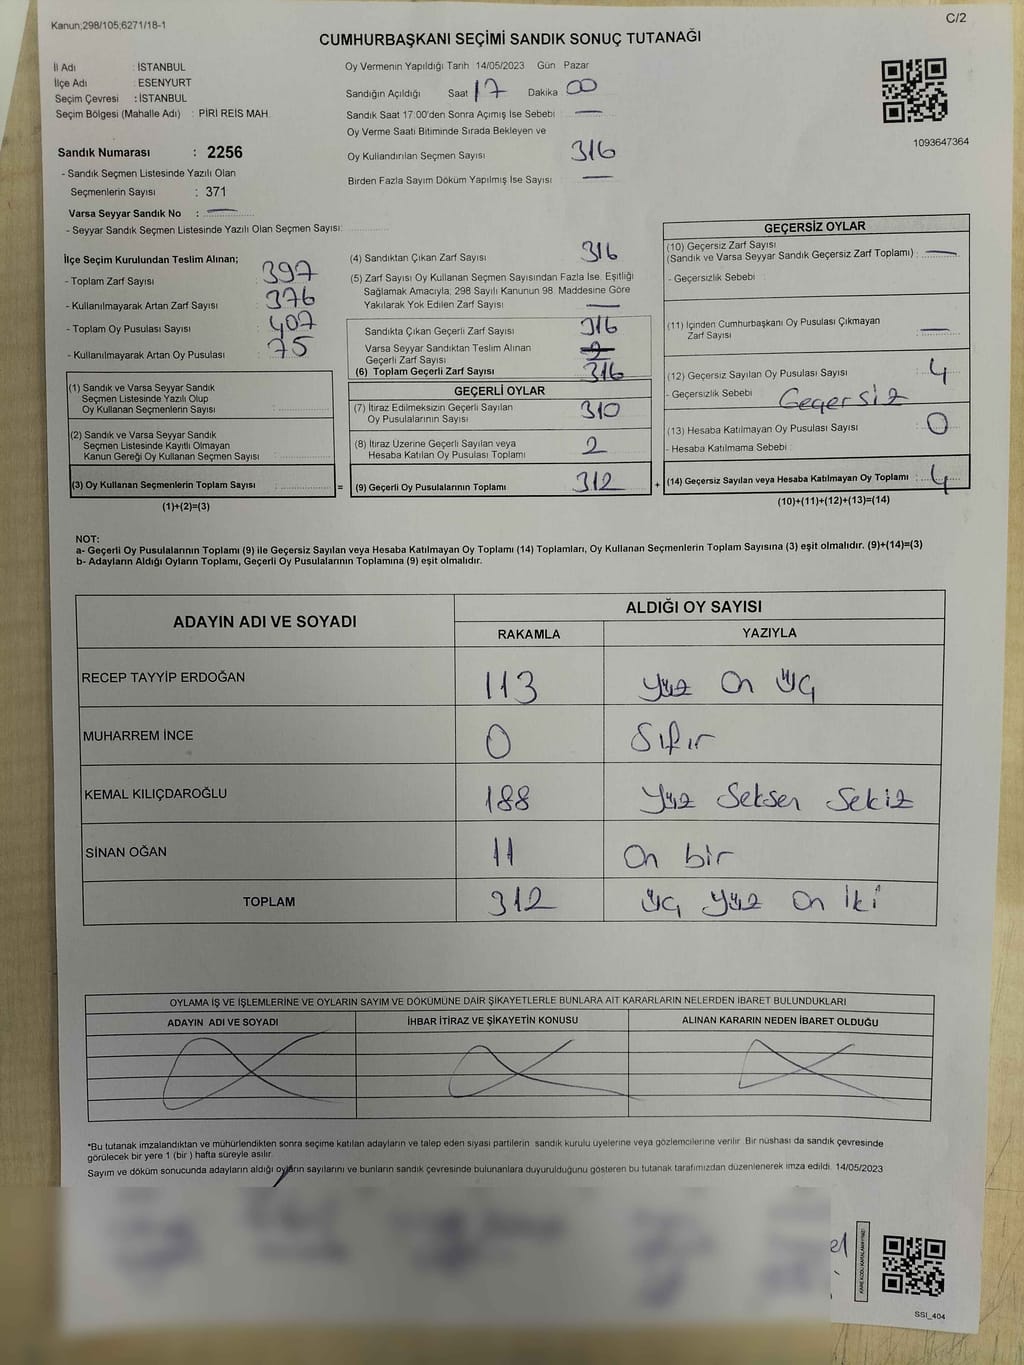 Kanun;298/105;6271/18-1
C/2
CUMHURBAŞKANI SEÇİMİ SANDIK SONUÇ TUTANAĞI
İl Adı : İSTANBUL
İlçe Adı : ESENYURT
Seçim Çevresi : İSTANBUL
Seçim Bölgesi (Mahalle Adı) : PİRİ REİS MAH.
Sandık Numarası : 2256
- Sandık Seçmen Listesinde Yazılı Olan
Seçmenlerin Sayısı : 371
Varsa Seyyar Sandık No : —
- Seyyar Sandık Seçmen Listesinde Yazılı Olan Seçmen Sayısı:
Oy Vermenin Yapıldığı Tarih : 14/05/2023 Gün : Pazar
Sandığın Açıldığı Saat 17 Dakika 00
Sandık Saat 17:00'den Sonra Açımış İse Sebebi : —
Oy Verme Saati Bitiminde Sırada Bekleyen ve
Oy Kullandırılan Seçmen Sayısı 316
Birden Fazla Sayım Döküm Yapılmış İse Sayısı —
1093647364
İlçe Seçim Kurulundan Teslim Alınan;
- Toplam Zarf Sayısı : 397
- Kullanılmayarak Artan Zarf Sayısı : 376
- Toplam Oy Pusulası Sayısı : 407
- Kullanılmayarak Artan Oy Pusulası : 75
(1) Sandık ve Varsa Seyyar Sandık
Seçmen Listesinde Yazılı Olup
Oy Kullanan Seçmenlerin Sayısı :
(2) Sandık ve Varsa Seyyar Sandık
Seçmen Listesinde Kayıtlı Olmayan
Kanun Gereği Oy Kullanan Seçmen Sayısı :
(3) Oy Kullanan Seçmenlerin Toplam Sayısı :
(1)+(2)=(3)
(4) Sandıktan Çıkan Zarf Sayısı 316
(5) Zarf Sayısı Oy Kullanan Seçmen Sayısından Fazla İse, Eşitliği
Sağlamak Amacıyla, 298 Sayılı Kanunun 98. Maddesine Göre
Yakılarak Yok Edilen Zarf Sayısı —
Sandıkta Çıkan Geçerli Zarf Sayısı 316
Varsa Seyyar Sandıktan Teslim Alınan
Geçerli Zarf Sayısı
(6) Toplam Geçerli Zarf Sayısı 316
GEÇERLİ OYLAR
(7) İtiraz Edilmeksizin Geçerli Sayılan
Oy Pusulalarının Sayısı 310
(8) İtiraz Üzerine Geçerli Sayılan veya
Hesaba Katılan Oy Pusulası Toplamı 2
= (9) Geçerli Oy Pusulalarının Toplamı 312
GEÇERSİZ OYLAR
(10) Geçersiz Zarf Sayısı
(Sandık ve Varsa Seyyar Sandık Geçersiz Zarf Toplamı) : —
- Geçersizlik Sebebi :
(11) İçinden Cumhurbaşkanı Oy Pusulası Çıkmayan
Zarf Sayısı : —
(12) Geçersiz Sayılan Oy Pusulası Sayısı : 4
- Geçersizlik Sebebi : Geçersiz
(13) Hesaba Katılmayan Oy Pusulası Sayısı : 0
- Hesaba Katılmama Sebebi :
+ (14) Geçersiz Sayılan veya Hesaba Katılmayan Oy Toplamı : 4
(10)+(11)+(12)+(13)=(14)
NOT:
a- Geçerli Oy Pusulalarının Toplamı (9) ile Geçersiz Sayılan veya Hesaba Katılmayan Oy Toplamı (14) Toplamları, Oy Kullanan Seçmenlerin Toplam Sayısına (3) eşit olmalıdır. (9)+(14)=(3)
b- Adayların Aldığı Oyların Toplamı, Geçerli Oy Pusulalarının Toplamına (9) eşit olmalıdır.
ADAYIN ADI VE SOYADI
ALDIĞI OY SAYISI
RAKAMLA YAZIYLA
RECEP TAYYİP ERDOĞAN 113 yüz on üç
MUHARREM İNCE 0 Sıfır
KEMAL KILIÇDAROĞLU 188 Yüz Seksen Sekiz
SİNAN OĞAN 11 On bir
TOPLAM 312 üç yüz on iki
OYLAMA İŞ VE İŞLEMLERİNE VE OYLARIN SAYIM VE DÖKÜMÜNE DAİR ŞİKAYETLERLE BUNLARA AİT KARARLARIN NELERDEN İBARET BULUNDUKLARI
ADAYIN ADI VE SOYADI İHBAR İTİRAZ VE ŞİKAYETİN KONUSU ALINAN KARARIN NEDEN İBARET OLDUĞU
*Bu tutanak imzalandıktan ve mühürlendikten sonra seçime katılan adayların ve talep eden siyasi partilerin sandık kurulu üyelerine veya gözlemcilerine verilir. Bir nüshası da sandık çevresinde
görülecek bir yere 1 (bir ) hafta süreyle asılır.
Sayım ve döküm sonucunda adayların aldığı oyların sayılarını ve bunların sandık çevresinde bulunanlara duyurulduğunu gösteren bu tutanak tarafımızdan düzenlenerek imza edildi. 14/05/2023
SSI_404